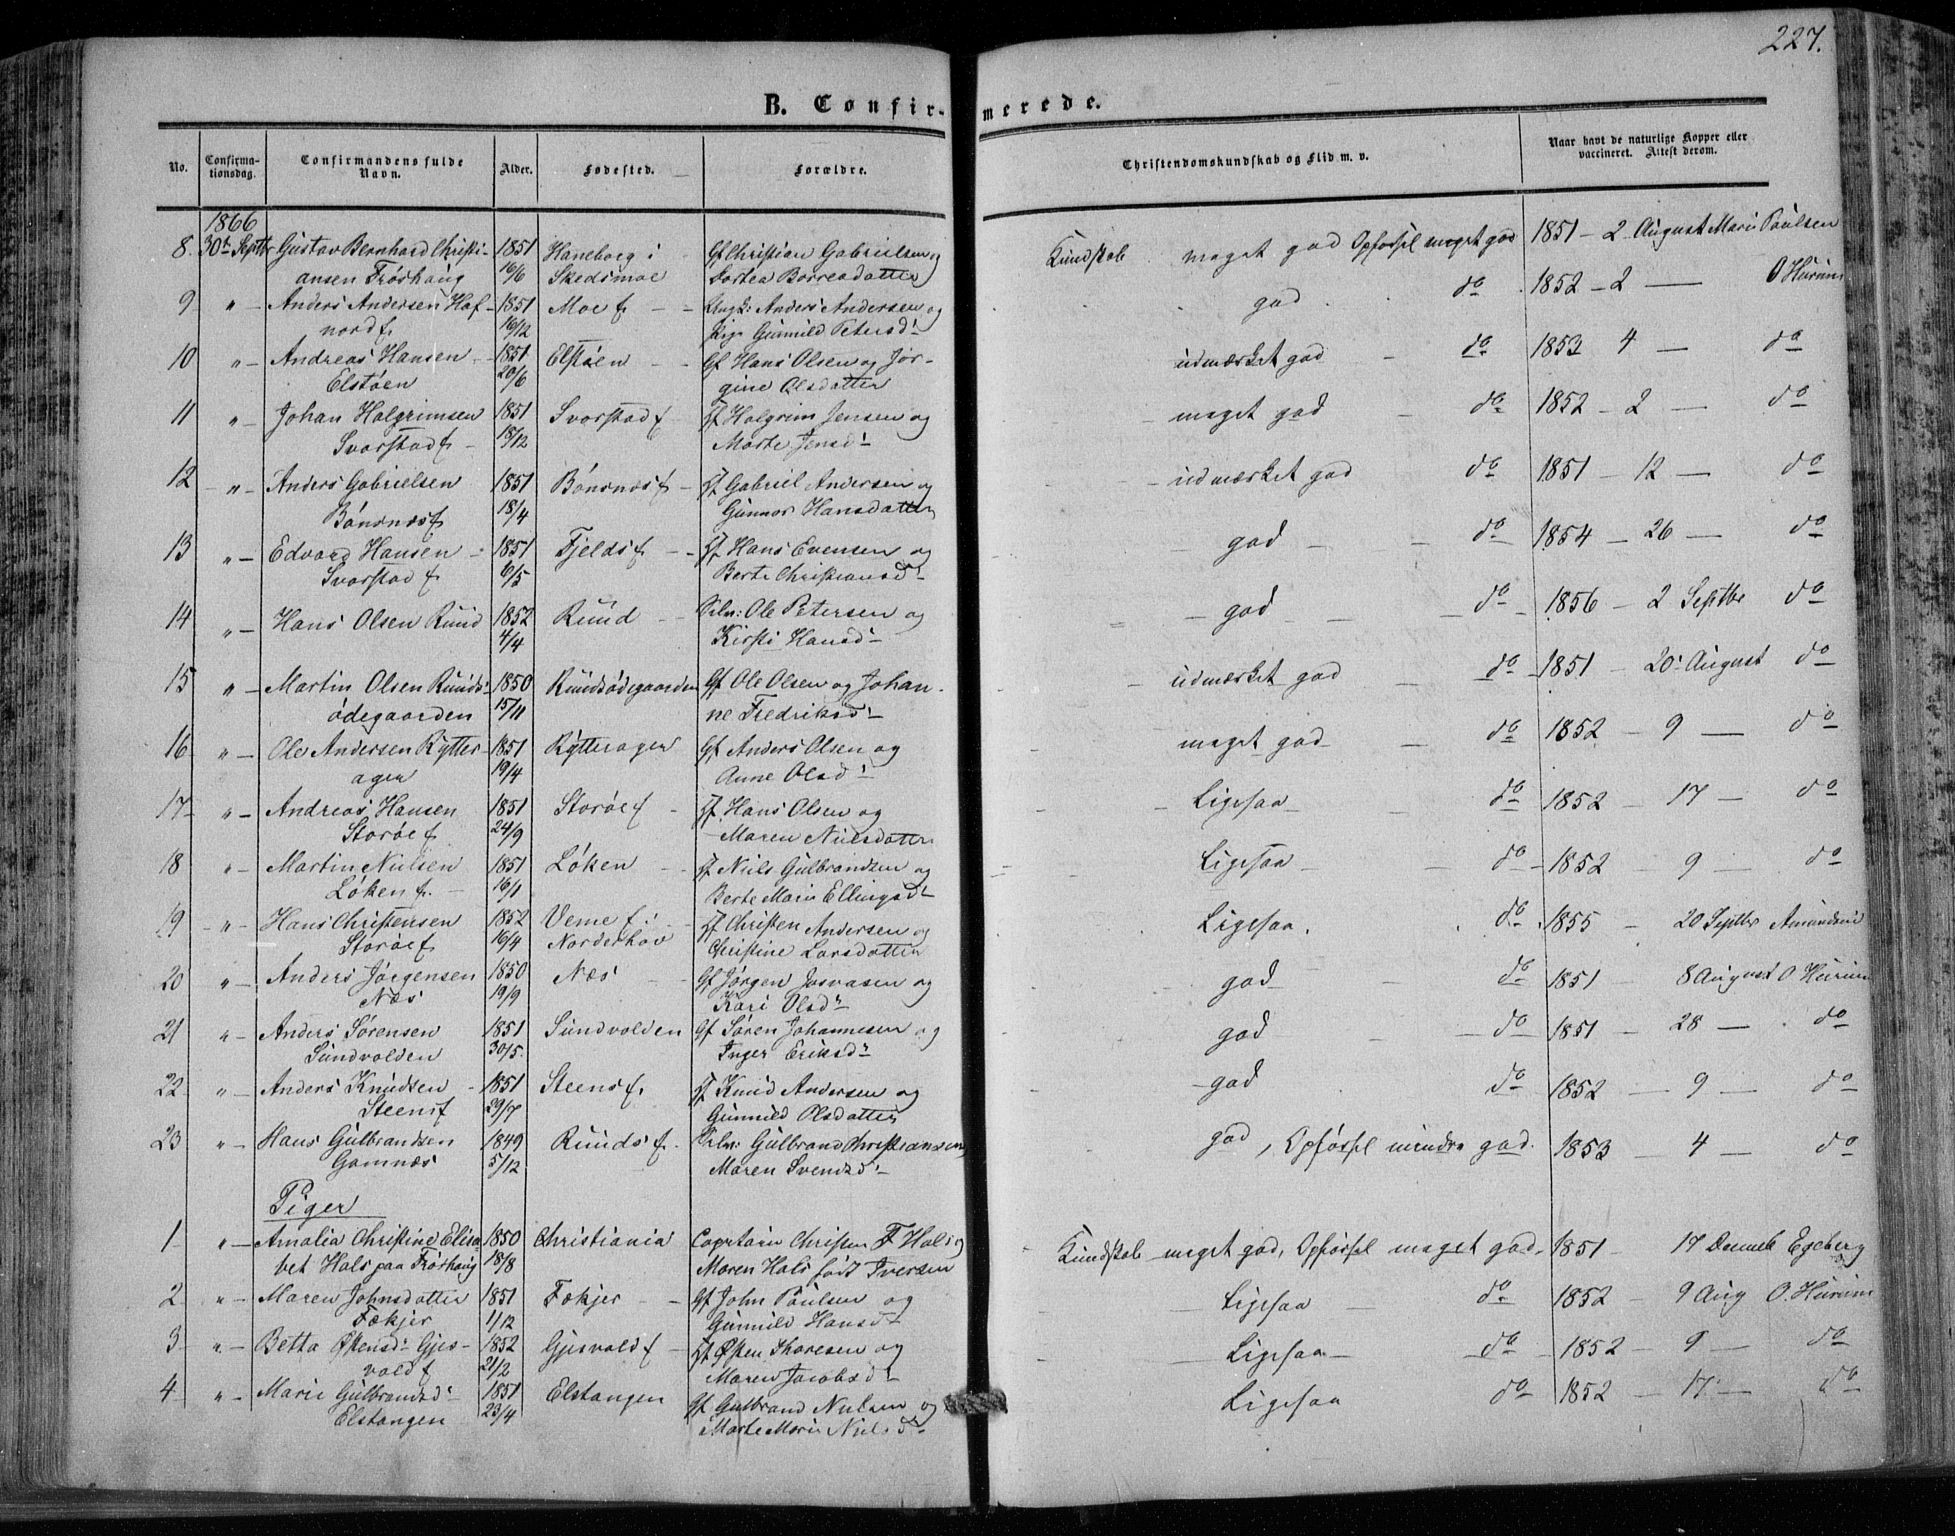 227.
B. Confir-merede.
No. Confirma-tionsdag. Confirmandens fulde Navn. Alder. Fødested. Forældre. Christendomskundskab og Flid m. v. Naar havt de naturlige Kopper eller vaccineret. Attest derom.
1866
8 30t Septbr Gustav Bernhard Christi- 1851 Haneborg i Gf Christian Gabrielsen og Kundskab meget god Opførsel meget god 1851 - 2 August Mari Paulsen
ansen Frøshaug 16/6 Skedsmoe Dortea Borresdatter
9 " Anders Andersen Haf- 1851 Moe f. Ungk: Anders Andersen og god do 1852 - 2 — O Hurum
nord f. 16/12 Pige Gunild Petersd:
10 " Andreas Hansen 1851 Elstøen Gf Hans Olsen og Jør- udmærket god do 1853 4 — do
Elstøen 20/6 gine Olsdatter
11 " Johan Halgrimsen 1851 Svarstad f Hf Halgrim Jensen og meget god do 1852 - 2 — do
Svarstad f. 18/12 Marte Jensd:
12 " Anders Gabrielsen 1851 Bønsnæs f Hf Gabriel Andersen og udmærket god do 1851 - 12 — do
Bønsnæs f 18/4 Gunnor Hansdatter
13 " Edvard Hansen 1851 Fjelds f. Hf Hans Evensen og god do 1854 - 26 — do
Svarstad f. 6/5 Berte Christiansd:
14 " Hans Olsen Ruud 1852 Ruud Selv: Ole Petersen og god do 1856 - 2 Septbr do
4/4 Kirsti Hansd:
15 " Martin Olsen Ruuds- 1850 Ruudsødegaarden Gf Ole Olsen og Johan- udmærket god do 1851 - 20 August do
ødegaarden 15/11 ne Fredriksd:
16 " Ole Andersen Rytter- 1851 Rytterager Gf Anders Olsen og meget god do 1852 - 9 — do
ager 19/4 Anne Olsd:
17 " Andreas Hansen 1851 Storøe f Hf. Hans Olsen og Ligesaa do 1852 - 17 — do
Storøe f. 24/9 Maren Nielsdatter
18 " Martin Nielsen 1851 Løken Hf Niels Gulbrandsen og Ligesaa do 1852 - 9 — do
Løken f. 16/1 Berte Marie Ellingsd:
19 " Hans Christensen 1852 Veme f. i Hf Christen Andersen og Ligesaa do 1855 - 20 Septbr Amundsen
Storøe f 16/4 Norderhov Christine Larsdatter
20 " Anders Jørgensen 1850 Næs Gf Jørgen Josvasen og god do 1851 8 August O Hurum
Næs 19/9 Kari Olsd:
21 " Anders Sørensen 1851 Sundvolden Gf Søren Johannesen og god do 1851 - 28 — do
Sundvolden 30/5 Inger Eriksd:
22 " Anders Knudsen 1851 Steens f. Hf Knud Andersen og god do 1852 - 9 — do
Steens f 29/7 Gunnild Olsdatter
23 " Hans Gulbrandsen 1849 Ruuds f. Selv: Gulbrand Christiansen god, Opførsel mindre god. 1853 - 4 — do
Gomnæs 5/12 Maren Svendsd:
Piger
1 " Amalia Christine Elisa- 1850 Christiania Capetain Christen F Hals og Kundskab meget god, Opførsel meget god. 1851 - 17 Decmb Egeberg
bet Hals paa Frøshaug 18/8 Maren Hals født Iversen
2 " Maren Johnsdatter 1851 Fækjer Gf John Paulsen og Ligesaa do 1852 - 9 Aug O. Hurum
Fækjer 1/12 Gunnild Hansd:
3 " Betta Østensd: Gjes- 1852 Gjesvold f Hf Østen Thoresen og Ligesaa do 1852 - 9 — do
vold f 21/2 Maren Jacobsd:
4 " Marie Gulbrandsd: 1851 Elstangen Gf Gulbrand Nielsen og Ligesaa do 1852 - 17 — do
Elstangen 23/4 Marte Marie Nielsd: